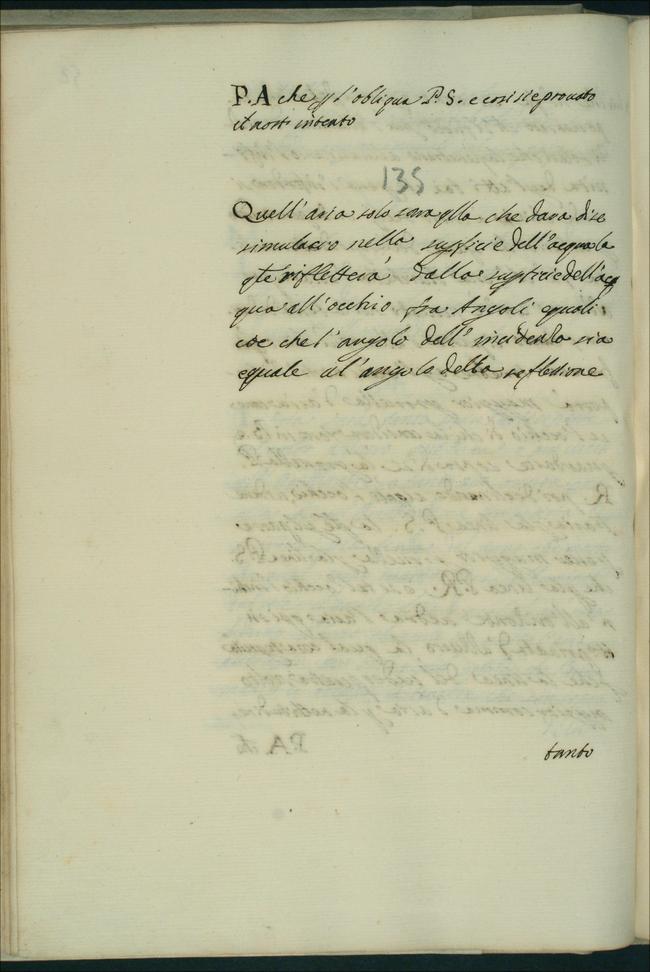 P. A che p l'obliqua P. S. e cosi si e prouato
il nost intento
135
Quell'aria solo sara qlla che dara di se
simulacro nella supficie dell'acqua la
qle rifletterà dalla supficie dell'ac
qua all'occhio fra Angoli equali
cioe che l'angolo dell'incidentia sia
equale al'angolo della reflessione
tanto